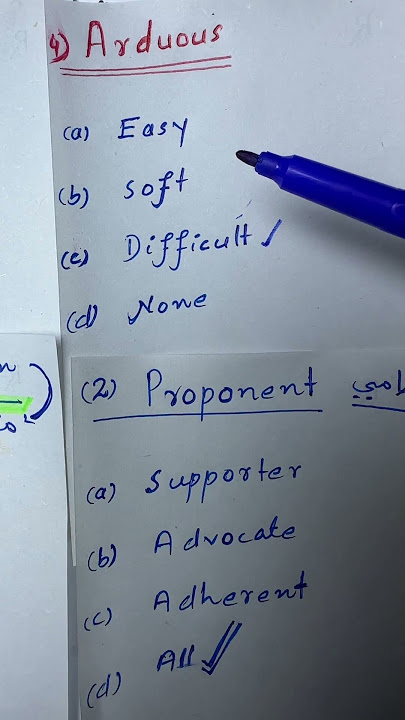 1) Arduous
(a) Easy
(b) Soft
(c) Difficult ✓
(d) None
(2) Proponent
(a) Supporter
(b) Advocate
(c) Adherent
(d) All ✓